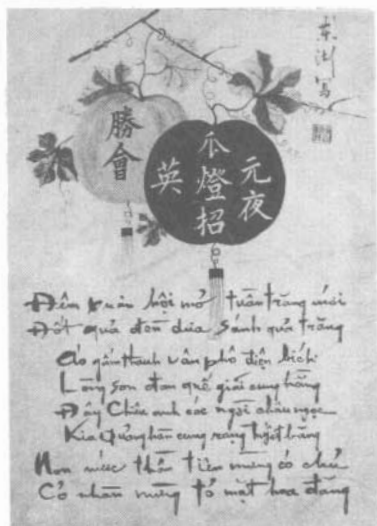 東湖寫
元夜
瓜燈招
英
勝會
Đêm xuân hội mở tuần trăng mới
Đốt quả đèn dưa sánh quả trăng
Áo gấm thanh vân phô điện bích
Lòng son đan quế giãi cung hằng
Đây Chiêu anh các ngời châu ngọc
Kia Quảng hàn cung rạng tuyết băng
Non nước thần tiên mừng có chủ
Cố nhân mừng tỏ mặt hoa đăng